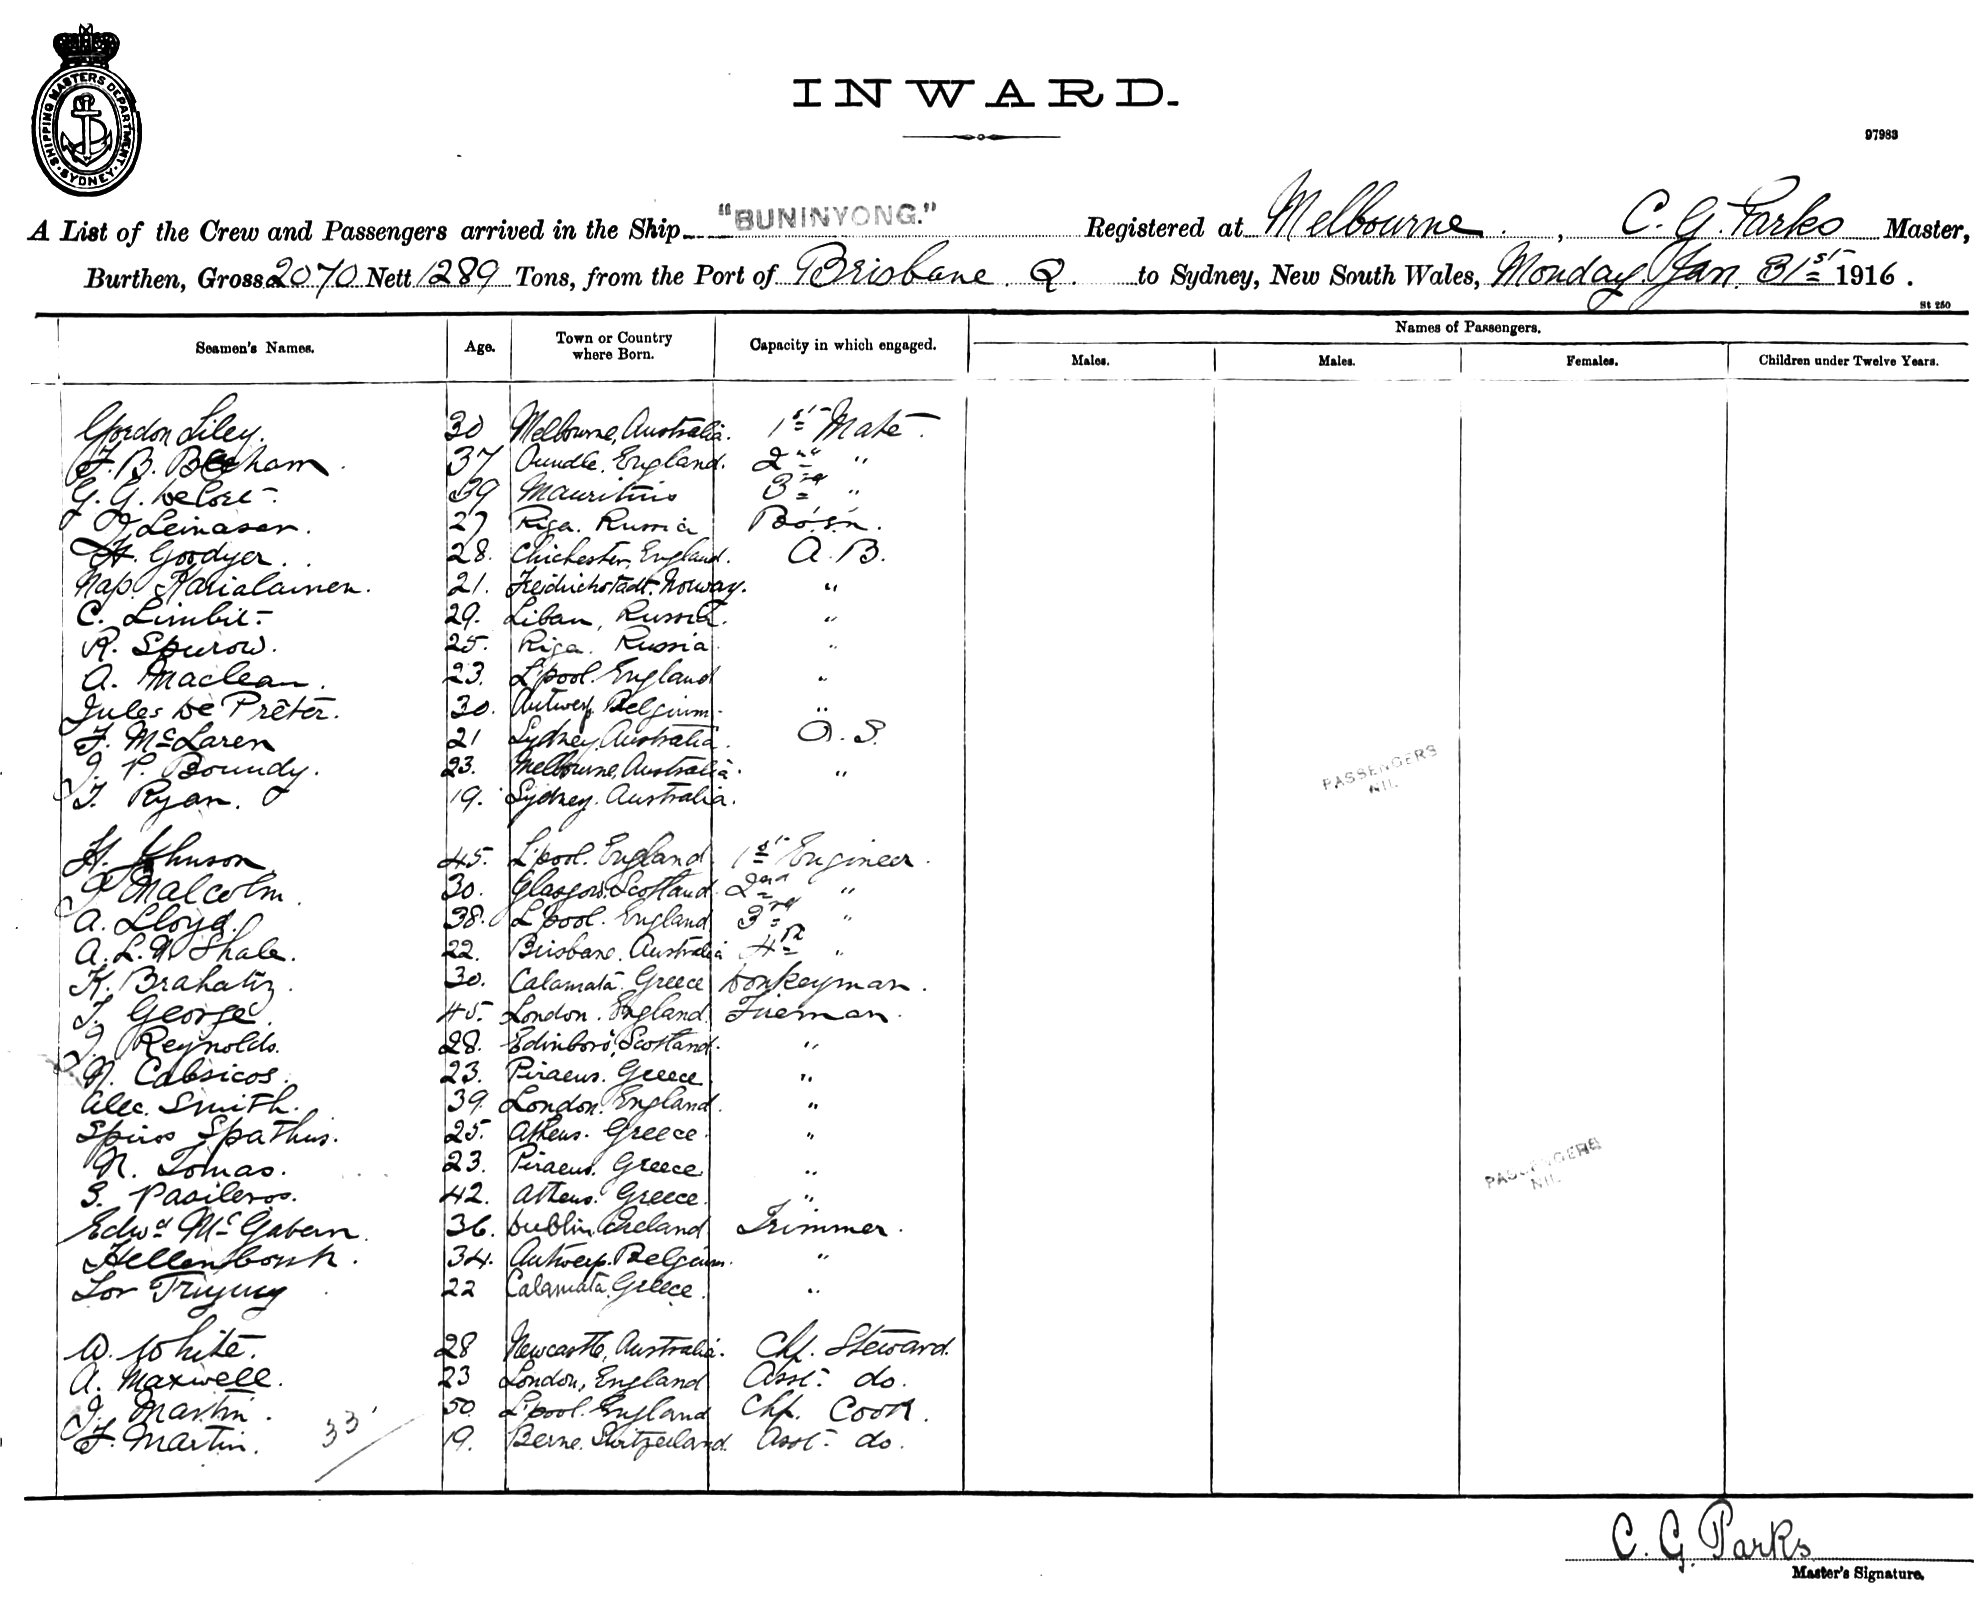 SHIPPING MASTERS DEPARTMENT
SYDNEY
INWARD.
97983
A List of the Crew and Passengers arrived in the Ship "BUNINYONG." Registered at Melbourne, C. G. Parks Master,
Burthen, Gross 2070 Nett 1289 Tons, from the Port of Brisbane Q. to Sydney, New South Wales, Monday Jan. 31st 1916.
St 250
Seamen's Names. Age. Town or Country where Born. Capacity in which engaged. Names of Passengers.
Males. Males. Females. Children under Twelve Years.
Gordon Liley. 30 Melbourne, Australia. 1st Mate.
F. B. 37 Oundle, England. 2nd "
G. G. 39 Mauritius 3rd "
J Leinasar. 27 Riga. Russia Bo's'n.
H. Goodyer. 28. Chichester, England. A. B.
Nap. Karialainen. 21. Freidrichstadt. Norway. "
C. Limbit. 29. Libau, Russia. "
R. Spurow. 25. Riga. Russia. "
A. Maclean. 23. L'pool. England "
Jules De Prêter. 30. Antwerp. Belgium. "
F. McLaren 21 Sydney, Australia. O. S.
J. P. Boundy. 23. Melbourne, Australia. "
T. Ryan. 19. Sydney. Australia.
PASSENGERS
NIL.
H. Johnson 45. L'pool. England. 1st Engineer.
J Malcolm. 30. Glasgow. Scotland. 2nd "
A. Lloyd. 38. L'pool. England. 3rd "
A. L. N Shale. 22. Brisbane. Australia 4th "
K. Brahatis. 30. Calamata. Greece Donkeyman.
T. George. 45. London. England. Fireman.
J. Reynolds. 28. Edinboro', Scotland. "
N. Cabsicos. 23. Piraeus. Greece. "
Alec. Smith. 39. London. England. "
Spiros Spathus. 25. Athens. Greece. "
N. Tomas. 23. Piraeus. Greece "
S. Pasileros. 42. Athens. Greece. "
Edwd McGabern. 36. Dublin. Ireland Trimmer.
Hellenbosch. 34. Antwerp. Belgium. "
22 Calamata. Greece. "
PASSENGERS
NIL.
A. White. 28 Newcastle, Australia. Chf. Steward.
A. Maxwell. 23 London, England Asst. do.
J. Martin. 50. L'pool. England Chf. Cook.
F. Martin. 19. Berne. Switzerland. Asst. do.
33
C. G. Parks
Master's Signature.